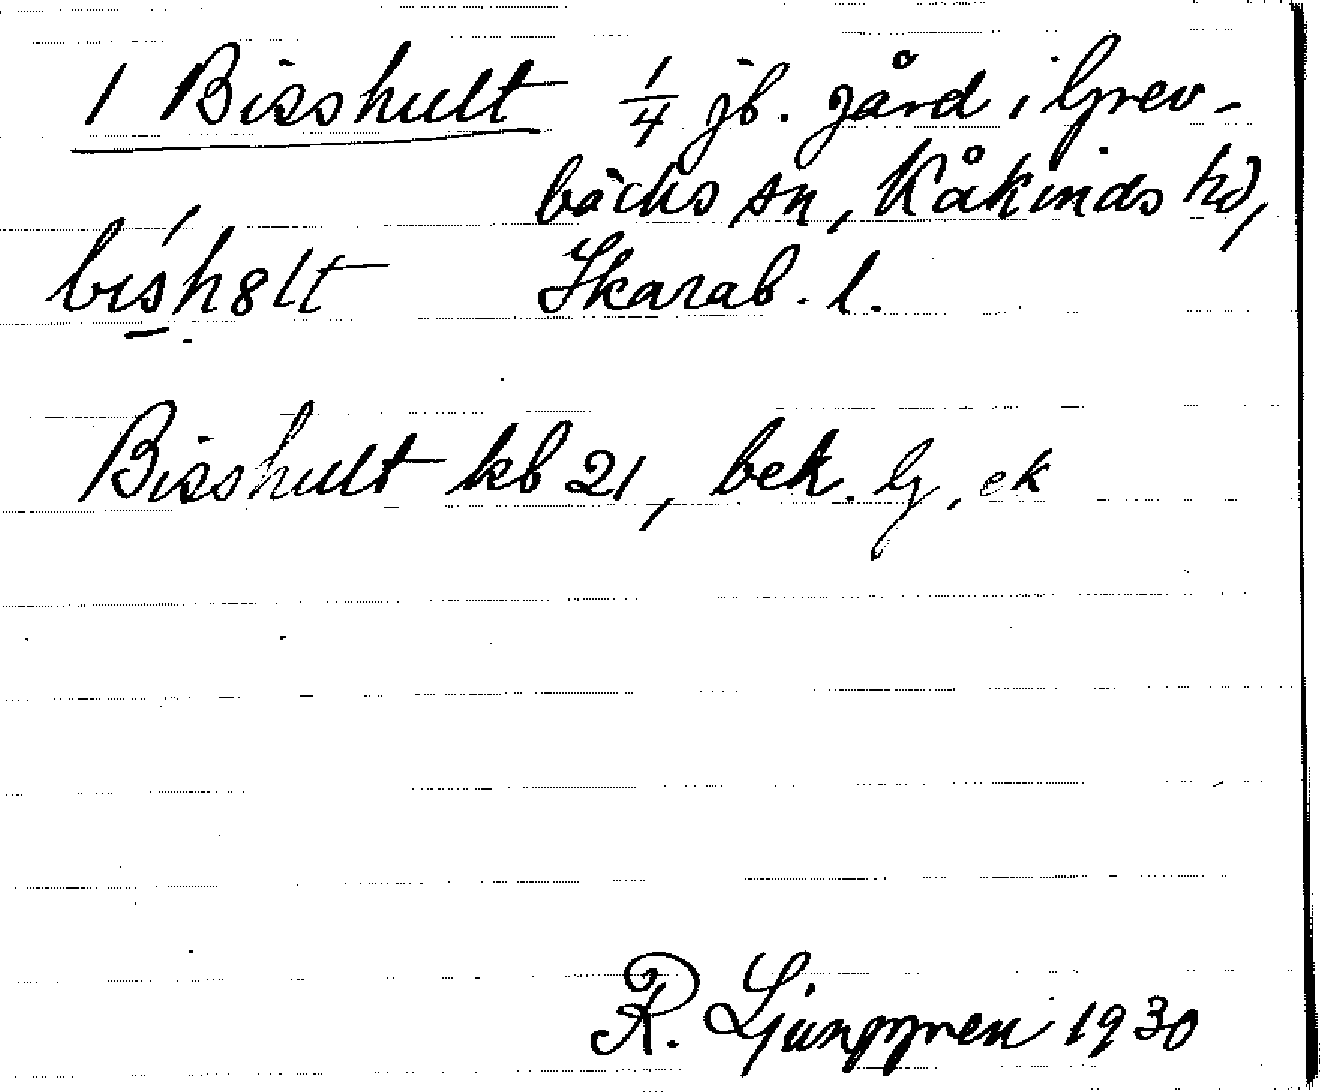 1 Bisshult 1/4 jb. gård i Grev-
bäcks sn, Kåkinds hd,
bìsh8lt Skarab. l.
Bisshult kb 21, bek. G, ek
R. Ljunggren 1930